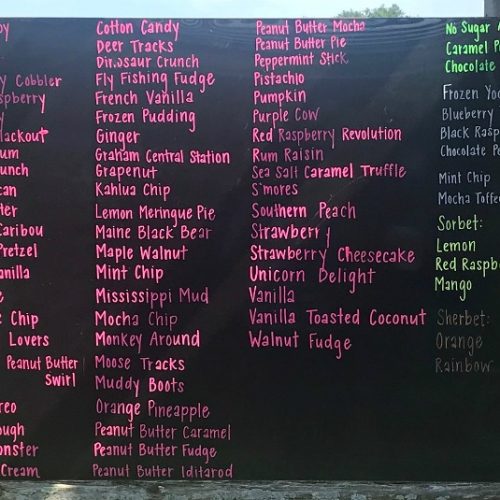 Cobbler
Caribou
Pretzel
Chip
Lovers
Peanut Butter
Swirl
Cream
Cotton Candy
Deer Tracks
Dinosaur Crunch
Fly Fishing Fudge
French Vanilla
Frozen Pudding
Ginger
Graham Central Station
Grapenut
Kahlua Chip
Lemon Meringue Pie
Maine Black Bear
Maple Walnut
Mint Chip
Mississippi Mud
Mocha Chip
Monkey Around
Moose Tracks
Muddy Boots
Orange Pineapple
Peanut Butter Caramel
Peanut Butter Fudge
Peanut Butter Iditarod
Peanut Butter Mocha
Peanut Butter Pie
Peppermint Stick
Pistachio
Pumpkin
Purple Cow
Red Raspberry Revolution
Rum Raisin
Sea Salt Caramel Truffle
S'mores
Southern Peach
Strawberry
Strawberry Cheesecake
Unicorn Delight
Vanilla
Vanilla Toasted Coconut
Walnut Fudge
No Sugar
Caramel
Chocolate
Frozen
Blueberry
Black
Chocolate
Mint Chip
Mocha
Sorbet:
Lemon
Red
Mango
Sherbet:
Orange
Rainbow